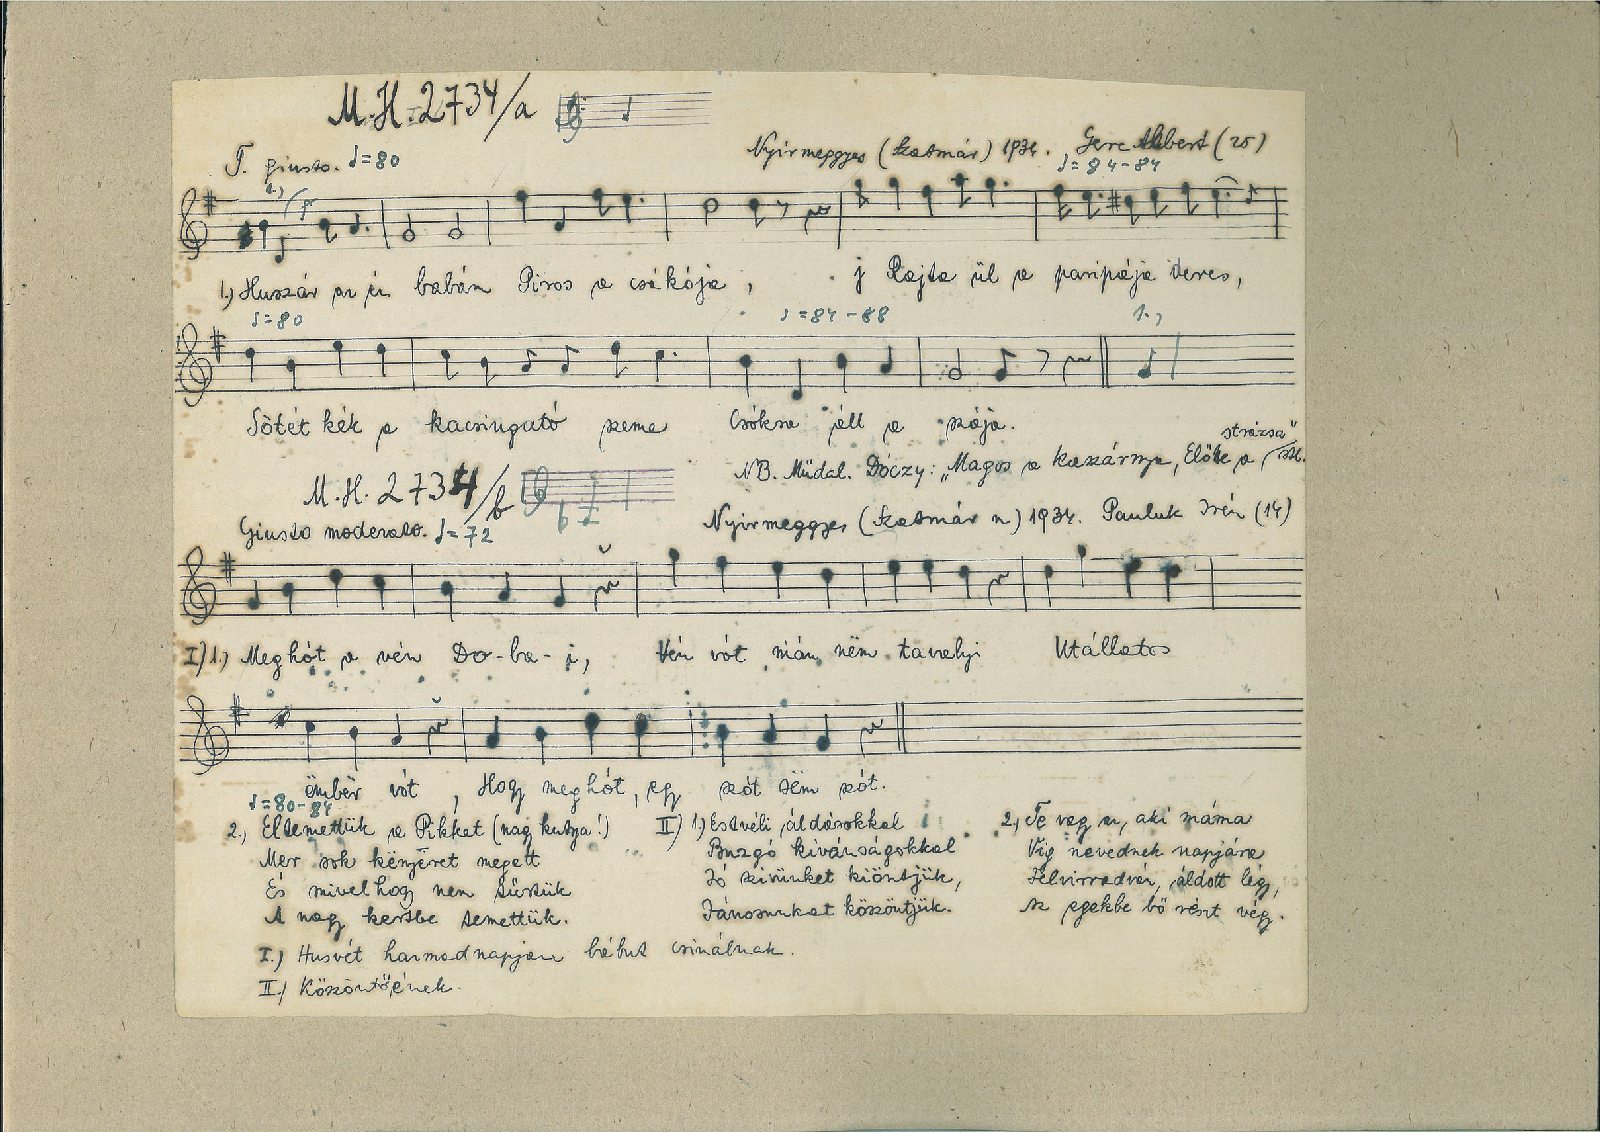 M.H. 2734/a
T. giusto. ♩=80
Nyirmeggyes (Szatmár) 1934. Gere Albert (25)
♩=84-84
1.)
1.) Huszár az én babám Piros a csákója, j Rajta ül a paripája deres,
♩=80
♩=84-88
1.,
Sötét kék a kacsingató szeme Csókra áll a szája.
NB. Műdal. Dóczy: „Magos a kaszárnya, Előtte a strázsa" stb.
M.H. 2734/b
Giusto moderato. ♩=72
Nyirmeggyes (Szatmár m) 1934. Pauluk Irén (14)
I) 1.) Meghót a vén Do-ba-i, Vén vót mán nëm tavalyi Utállatos
ëmbër vót, Hogy meghót, egy szót sëm szót.
♩=80-84
2., Eltemettük a Pikket (nagy kutya!)
Mer sok kënyéret megett
És mivelhogy nem türtük
A nagy kertbe temettük.
II) 1.) Estvéli áldásokkal
Buzgó kívánságokkal
Jó szivünket kiöntjük,
Jánosunkat köszöntjük.
2., Te vagy az, aki máma
Víg nevednek napjára
Felvirradván, áldott légy,
Az egekbe bő részt végy.
I.) Husvét harmadnapján bábut csinálnak.
II.) Köszöntőének.